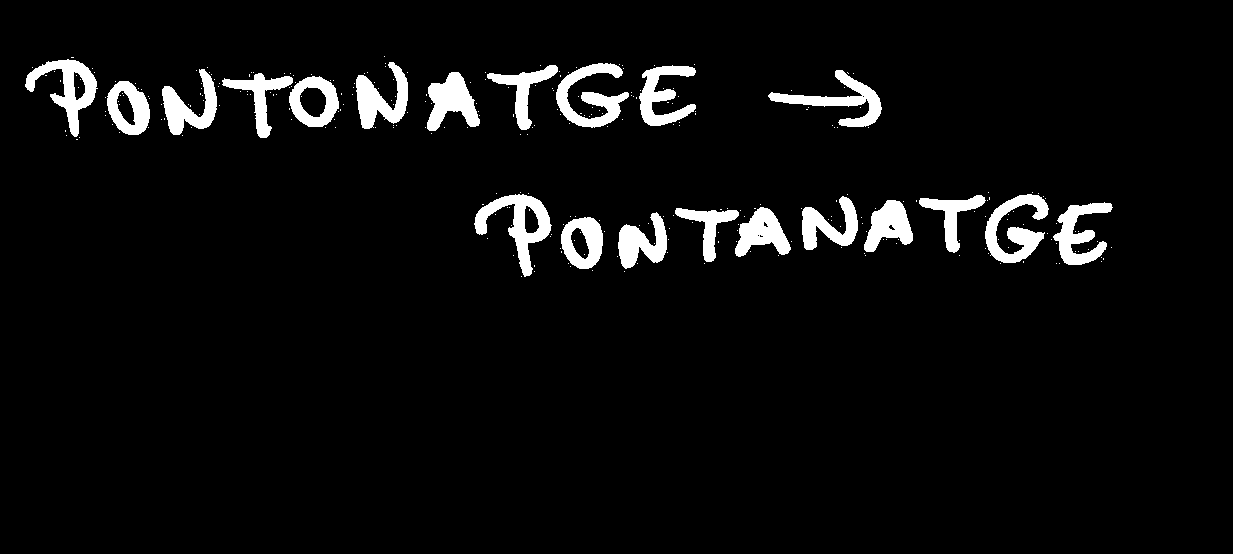 PONTONATGE →
PONTANATGE